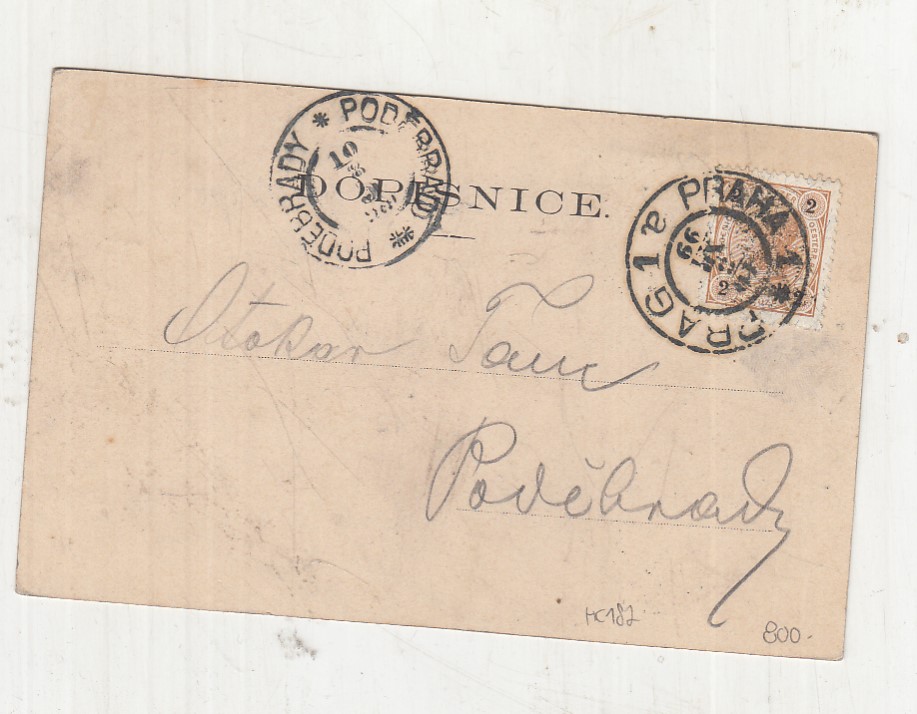 PODĚBRADY * PODĚBRADY *
10
DOPISNICE.
PRAHA 1 PRAG 1 a
99
2
2
Otokar
Poděbrady
HC182
800.-